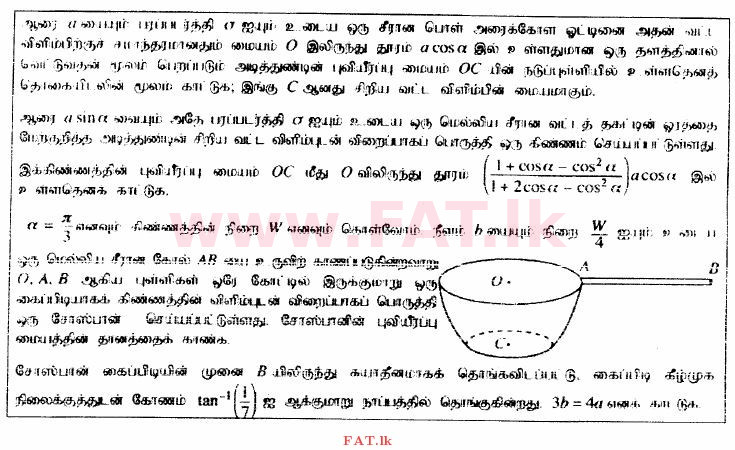 ஆரை a யையும் பரப்படர்த்தி σ ஐயும் உடைய ஒரு சீரான பொள் அரைக்கோள ஓட்டினை அதன் வட்ட
விளிம்பிற்குச் சமாந்தரமானதும் மையம் O இலிருந்து தூரம் a cos α இல் உள்ளதுமான ஒரு தளத்தினால்
வெட்டுவதன் மூலம் பெறப்படும் அடித்துண்டின் புவியீர்ப்பு மையம் OC யின் நடுப்புள்ளியில் உள்ளதெனத்
தொகையிடலின் மூலம் காட்டுக; இங்கு C ஆனது சிறிய வட்ட விளிம்பின் மையமாகும்.
ஆரை a sin α வையும் அதே பரப்படர்த்தி σ ஐயும் உடைய ஒரு மெல்லிய சீரான வட்டத் தகட்டின் ஓரத்தை
மேற்குறித்த அடித்துண்டின் சிறிய வட்ட விளிம்புடன் விறைப்பாகப் பொருத்தி ஒரு கிண்ணம் செய்யப்பட்டுள்ளது.
இக்கிண்ணத்தின் புவியீர்ப்பு மையம் OC மீது O விலிருந்து தூரம் ((1 + cos α − cos² α)/(1 + 2cos α − cos² α)) a cos α இல்
உள்ளதெனக் காட்டுக.
α = π/3 எனவும் கிண்ணத்தின் நிறை W எனவும் கொள்வோம். நீளம் b யையும் நிறை W/4 ஐயும் உடைய
ஒரு மெல்லிய சீரான கோல் AB யை உருவிற் காணப்படுகின்றவாறு
O, A, B ஆகிய புள்ளிகள் ஒரே கோட்டில் இருக்குமாறு ஒரு
கைப்பிடியாகக் கிண்ணத்தின் விளிம்புடன் விறைப்பாகப் பொருத்தி
ஒரு சோஸ்பான் செய்யப்பட்டுள்ளது. சோஸ்பானின் புவியீர்ப்பு
மையத்தின் தானத்தைக் காண்க.
O
A
B
C
சோஸ்பான் கைப்பிடியின் முனை B யிலிருந்து சுயாதீனமாகத் தொங்கவிடப்பட்டு, கைப்பிடி கீழ்முக
நிலைக்குத்துடன் கோணம் tan⁻¹(1/7) ஐ ஆக்குமாறு நாப்பத்தில் தொங்குகின்றது. 3b = 4a எனக் காட்டுக.
www.FAT.lk
FAT.lk